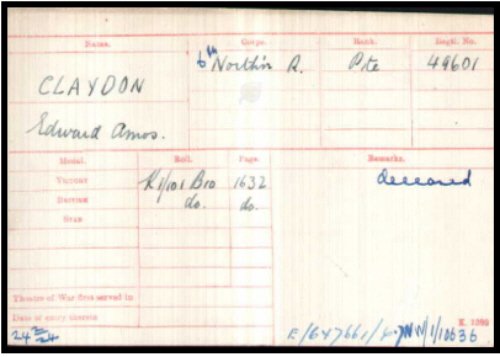 Name. Corps. Rank. Regtl. No.
CLAYDON 6th North'n R. Pte 49601
Edward Amos.
Medal. Roll. Page. Remarks.
VICTORY K/1/101 B10 1632 deceased
BRITISH do. do.
STAR
Theatre of War first served in
Date of entry therein K. 1380
24 2 24 E/647661/ NW/1/10636